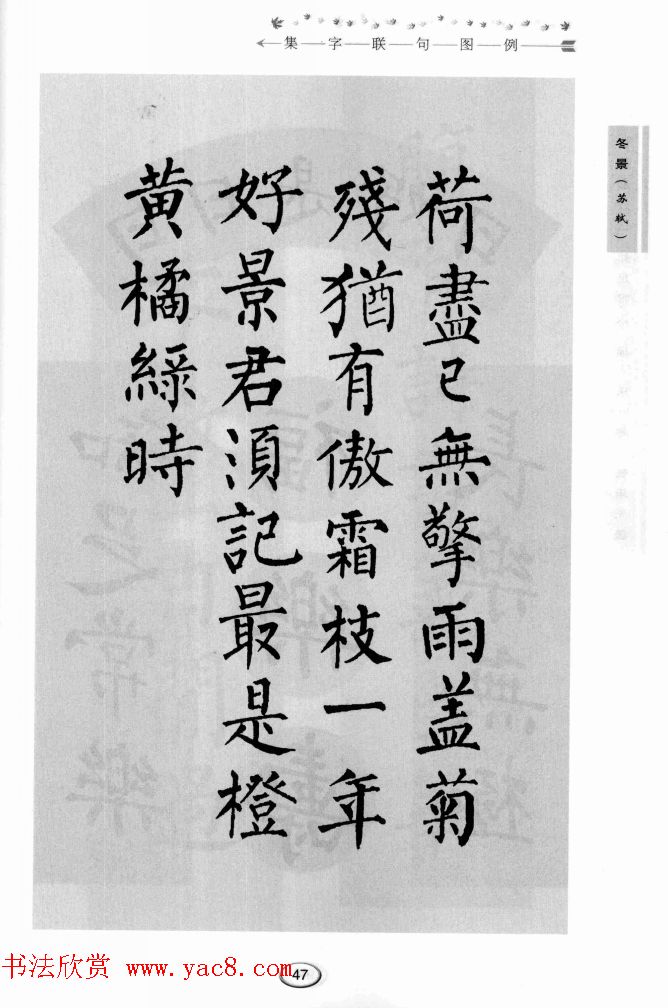 集字联句图例
冬景（苏轼）
荷盡已無擎雨盖菊
殘猶有傲霜枝一年
好景君須記最是橙
黄橘緑時
47
书法欣赏 www.yac8.com